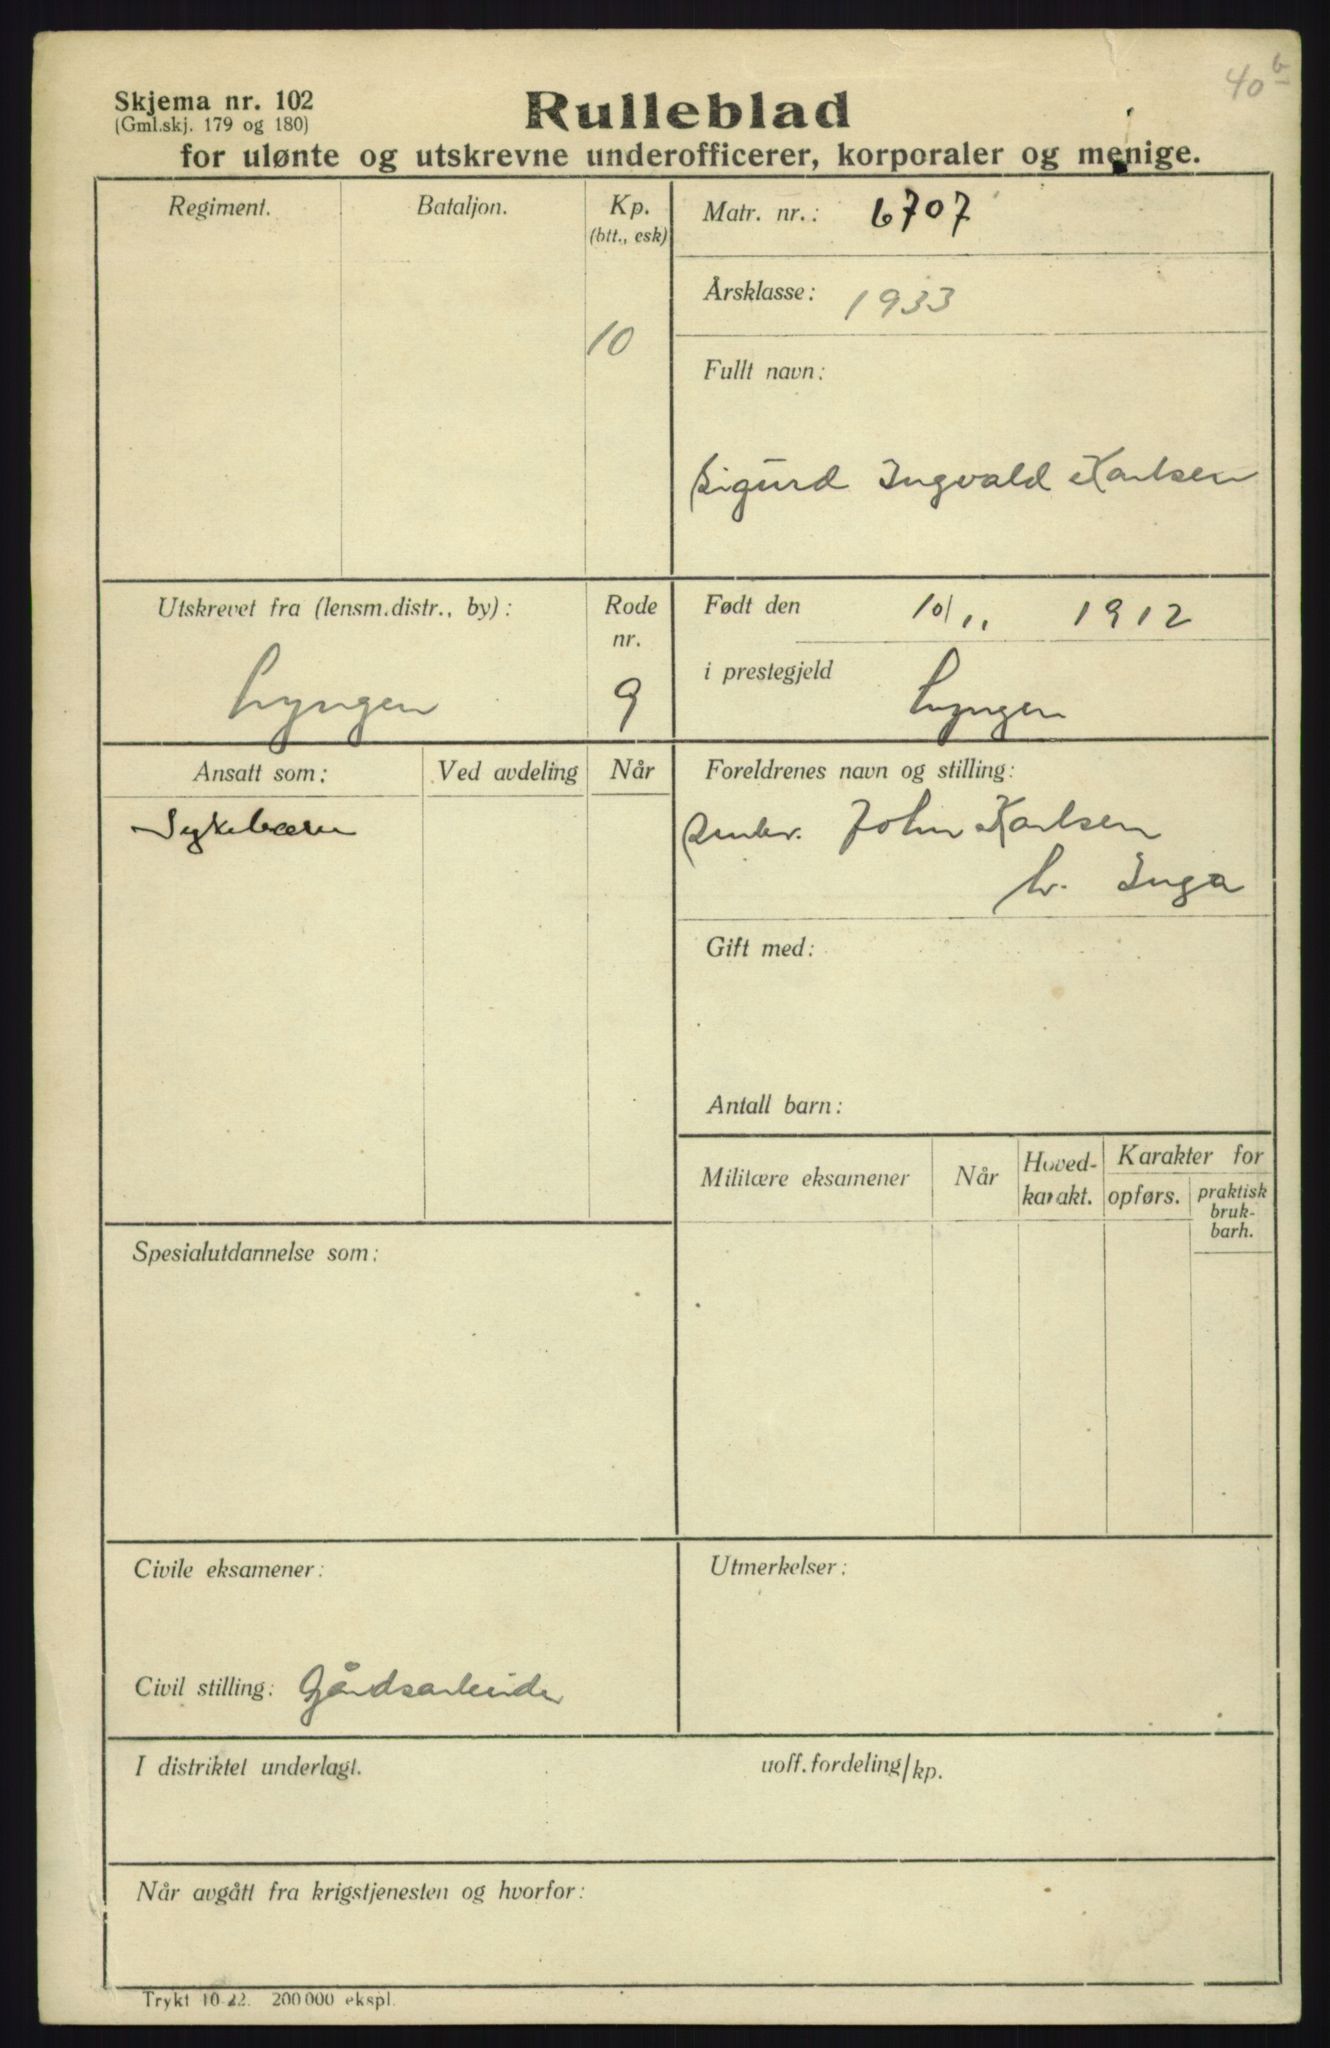 40 b
Skjema nr. 102
(Gml.skj. 179 og 180)
Rulleblad
for ulønte og utskrevne underofficerer, korporaler og menige.
Regiment.
Bataljon.
Kp.
(btt., esk)
10
Matr. nr.: 6707
Årsklasse: 1933
Fullt navn:
Sigurd Ingvald Karlsen
Utskrevet fra (lensm.distr., by):
Lyngen
Rode
nr.
9
Født den 10/11 1912
i prestegjeld Lyngen
Ansatt som:
Ved avdeling
Når
Sykebærer
Foreldrenes navn og stilling:
John Karlsen
h. Inga
Gift med:
Antall barn:
Militære eksamener
Når
Hoved-
karakt.
Karakter for
opførs.
praktisk
bruk-
barh.
Spesialutdannelse som:
Civile eksamener:
Civil stilling: Gårdsarbeider
Utmerkelser:
I distriktet underlagt.
uoff. fordeling/kp.
Når avgått fra krigstjenesten og hvorfor:
Trykt 10-22. 200 000 ekspl.